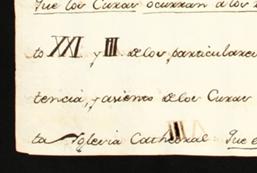 Que los Curas ocurran a los
to XXI y III de los particulares
tencia, y asiento de los Curas
ta Iglesia Cathedral. Que e